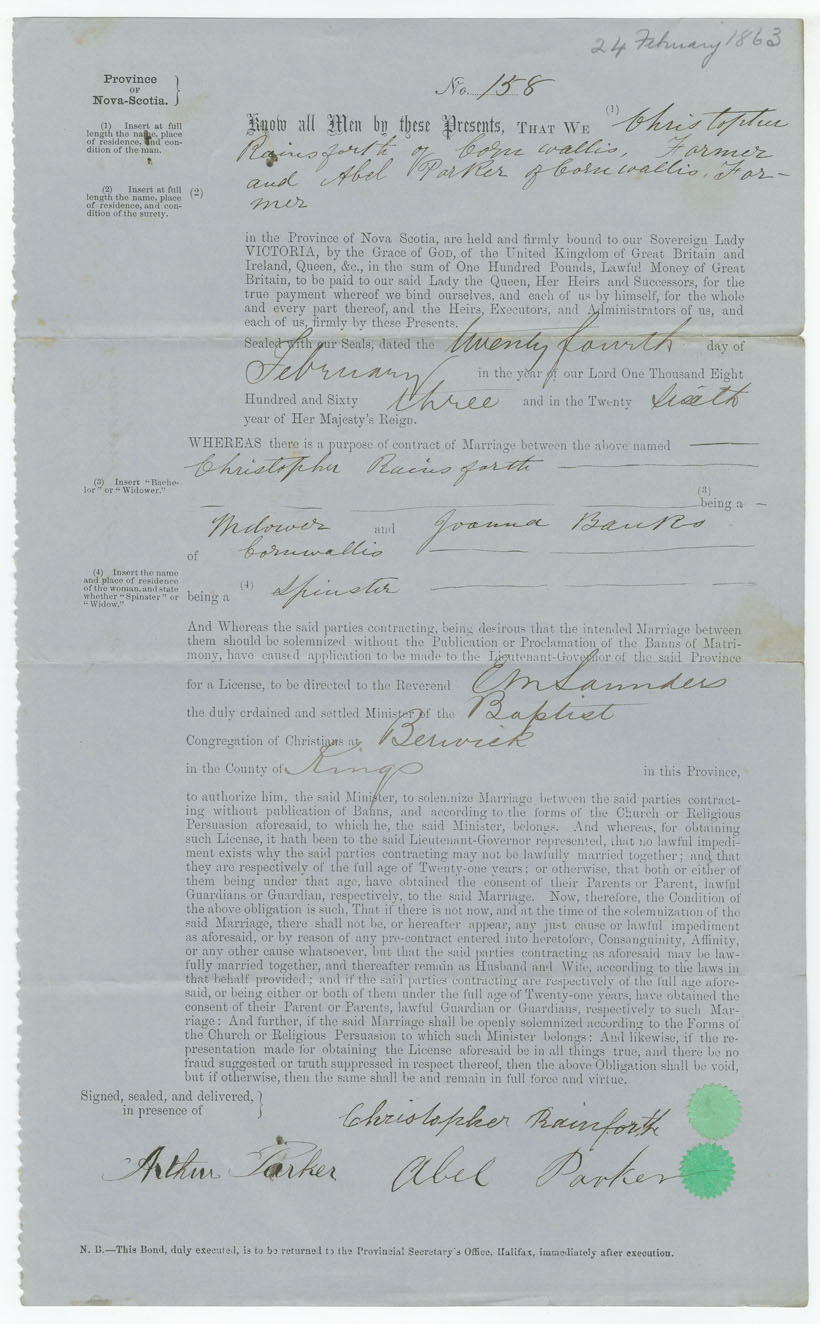 24 February 1863
Province
OF
Nova-Scotia.
No. 158
(1) Insert at full
length the name, place
of residence, and con-
dition of the man.
Know all Men by these Presents, THAT WE (1) Christopher
Rainsforth of Cornwallis, Farmer
and Abel Parker of Cornwallis, Far-
mer
(2) Insert at full
length the name, place
of residence, and con-
dition of the surety.
(2)
in the Province of Nova Scotia, are held and firmly bound to our Sovereign Lady
VICTORIA, by the Grace of God, of the United Kingdom of Great Britain and
Ireland, Queen, &c., in the sum of One Hundred Pounds, Lawful Money of Great
Britain, to be paid to our said Lady the Queen, Her Heirs and Successors, for the
true payment whereof we bind ourselves, and each of us by himself, for the whole
and every part thereof, and the Heirs, Executors, and Administrators of us, and
each of us, firmly by these Presents.
Sealed with our Seals, dated the twenty fourth day of
February in the year of our Lord One Thousand Eight
Hundred and Sixty three and in the Twenty Sixth
year of Her Majesty's Reign.
WHEREAS there is a purpose of contract of Marriage between the above named
Christopher Rainsforth
(3) Insert "Bache-
lor" or "Widower."
(3)
being a
Widower and Joanna Banks
of Cornwallis
(4) Insert the name
and place of residence
of the woman, and state
whether "Spinster" or
"Widow."
being a (4) Spinster
And Whereas the said parties contracting, being desirous that the intended Marriage between
them should be solemnized without the Publication or Proclamation of the Banns of Matri-
mony, have caused application to be made to the Lieutenant-Governor of the said Province
for a License, to be directed to the Reverend E M Saunders
the duly ordained and settled Minister of the Baptist
Congregation of Christians at Berwick
in the County of Kings in this Province,
to authorize him, the said Minister, to solemnize Marriage between the said parties contract-
ing without publication of Banns, and according to the forms of the Church or Religious
Persuasion aforesaid, to which he, the said Minister, belongs. And whereas, for obtaining
such License, it hath been to the said Lieutenant-Governor represented, that no lawful impedi-
ment exists why the said parties contracting may not be lawfully married together; and that
they are respectively of the full age of Twenty-one years; or otherwise, that both or either of
them being under that age, have obtained the consent of their Parents or Parent, lawful
Guardians or Guardian, respectively, to the said Marriage. Now, therefore, the Condition of
the above obligation is such, That if there is not now, and at the time of the solemnization of the
said Marriage, there shall not be, or hereafter appear, any just cause or lawful impediment
as aforesaid, or by reason of any pre-contract entered into heretofore, Consanguinity, Affinity,
or any other cause whatsoever, but that the said parties contracting as aforesaid may be law-
fully married together, and thereafter remain as Husband and Wife, according to the laws in
that behalf provided; and if the said parties contracting are respectively of the full age afore-
said, or being either or both of them under the full age of Twenty-one years, have obtained the
consent of their Parent or Parents, lawful Guardian or Guardians, respectively to such Mar-
riage: And further, if the said Marriage shall be openly solemnized according to the Forms of
the Church or Religious Persuasion to which such Minister belongs: And likewise, if the re-
presentation made for obtaining the License aforesaid be in all things true, and there be no
fraud suggested or truth suppressed in respect thereof, then the above Obligation shall be void,
but if otherwise, then the same shall be and remain in full force and virtue.
Signed, sealed, and delivered,
in presence of
Christopher Rainforth
Arthur Parker Abel Parker
N. B.—This Bond, duly executed, is to be returned to the Provincial Secretary's Office, Halifax, immediately after execution.